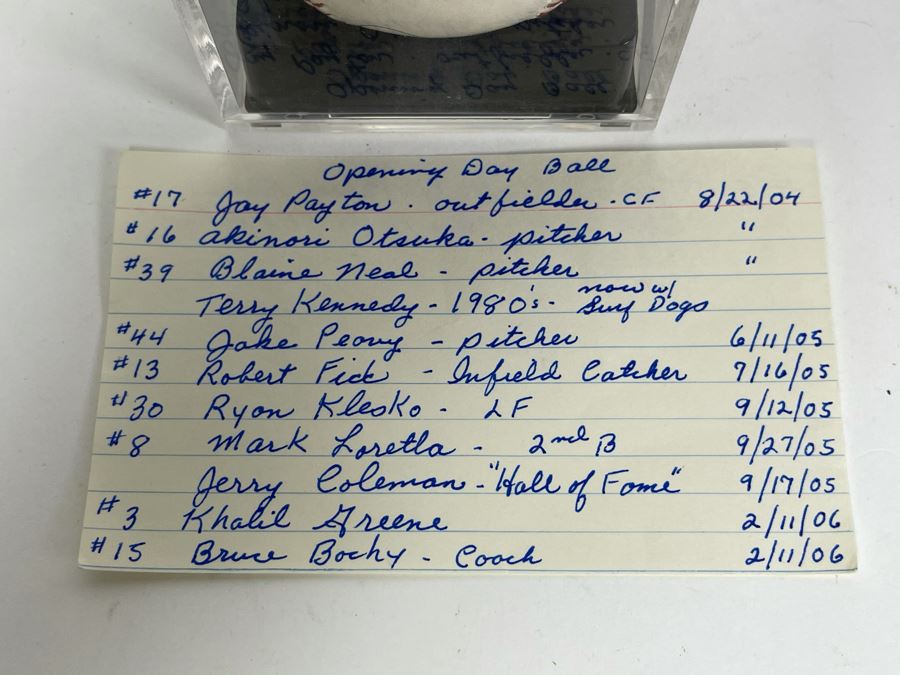 Opening Day Ball
#17 Jay Payton - outfielder - CF 8/22/04
#16 Akinori Otsuka - pitcher "
#39 Blaine Neal - pitcher "
Terry Kennedy - 1980's - now w/ Surf Dogs
#44 Jake Peavy - pitcher 6/11/05
#13 Robert Fick - Infield Catcher 7/16/05
#30 Ryan Klesko - LF 9/12/05
#8 Mark Loretta - 2nd B 9/27/05
Jerry Coleman - "Hall of Fame" 9/17/05
#3 Khalil Greene 2/11/06
#15 Bruce Bochy - Coach 2/11/06